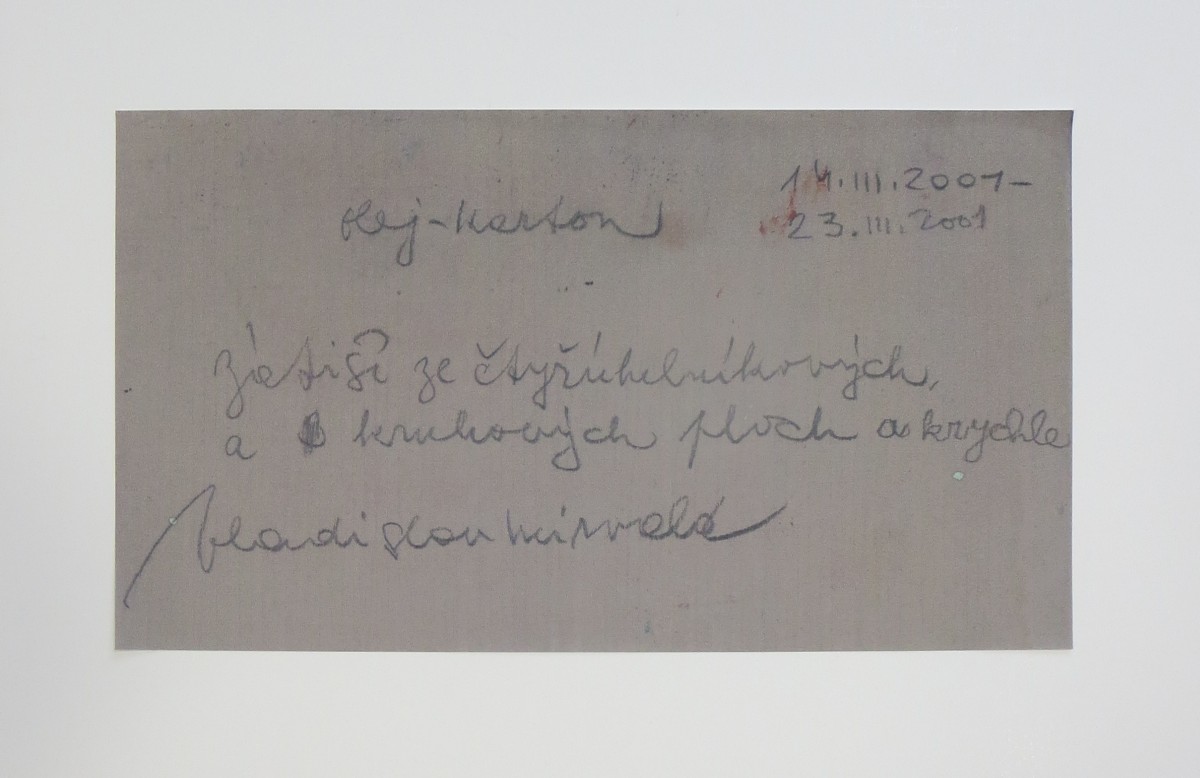 14.III.2001–
olej-karton
23.III.2001
Zátiší ze čtyřúhelníkových,
a kruhových ploch a krychle
Vladislav Mirvald